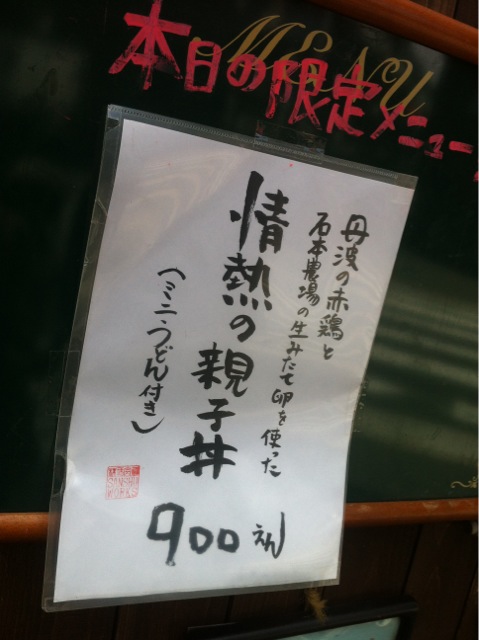 MENU
本日の限定メニュー
丹波の赤鶏と
石本農場の生みたて卵を使った
情熱の親子丼
（ミニ・うどん付き）
900えん